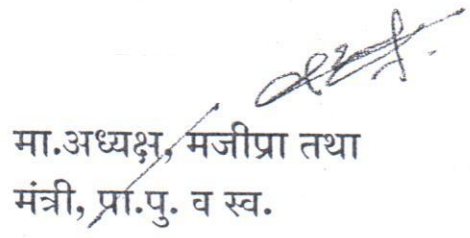 मा.अध्यक्ष, मजीप्रा तथा
मंत्री, प्रा.पु. व स्व.